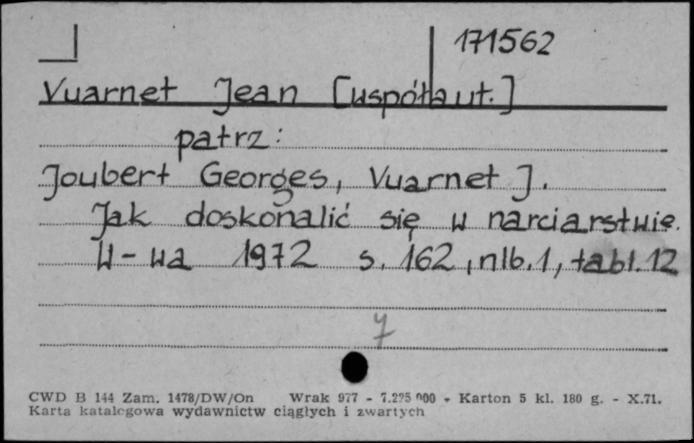 171562
Vuarnet Jean [współaut.]
patrz:
Joubert Georges, Vuarnet J.
Jak doskonalić się w narciarstwie.
W-wa 1972 s. 162, nlb. 1, tabl. 12
7
CWD B 144 Zam. 1478/DW/On Wrak 977 - 7.275 000 - Karton 5 kl. 180 g. - X.71.
Karta katalogowa wydawnictw ciągłych i zwartych